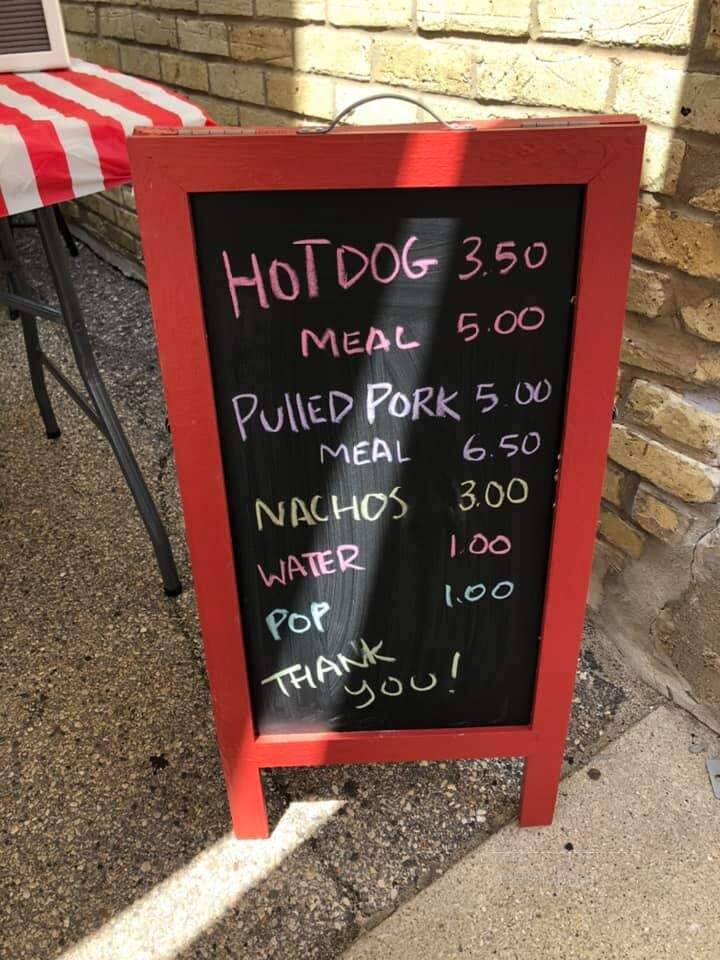 HOT DOG 3.50
MEAL 5.00
PUllED PORK 5.00
MEAL 6.50
NACHOS 3.00
WATER 1.00
POP 1.00
THANK
you!